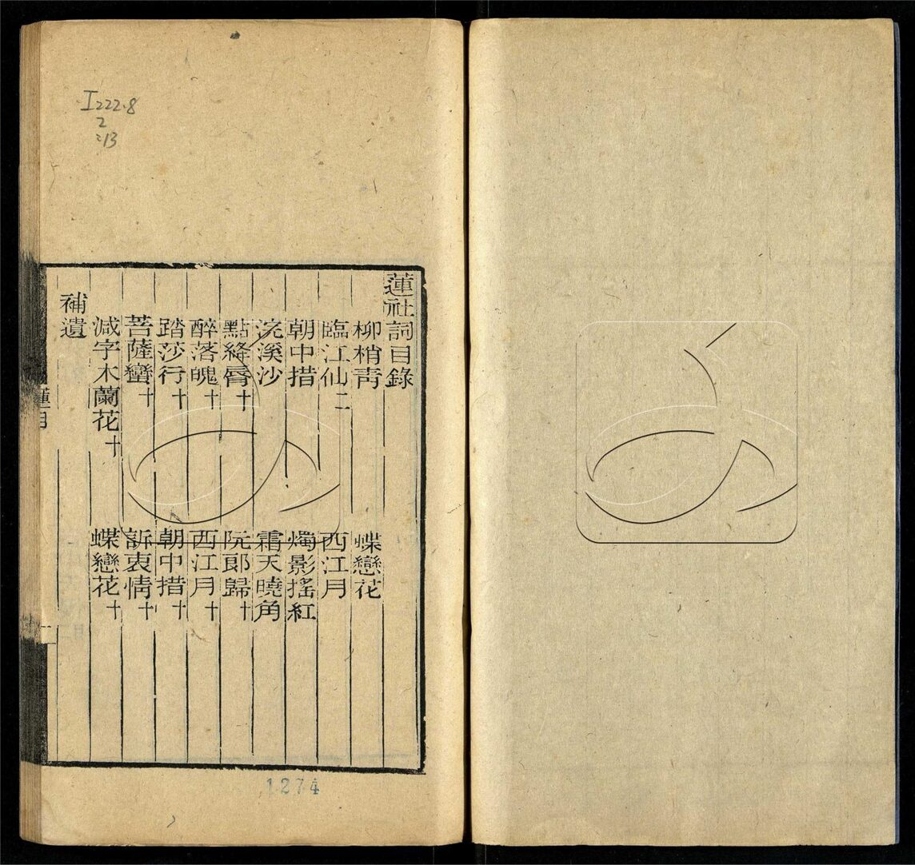 蓮社詞目錄
柳梢青 蝶戀花
臨江仙二 西江月
朝中措 燭影搖紅
浣溪沙 霜天曉角
點絳脣十 阮郎歸十
醉落魄十 西江月十
踏莎行十 朝中措十
菩薩蠻十 訴衷情十
減字木蘭花十 蝶戀花十
補遺
I222.8
2
:13
1274